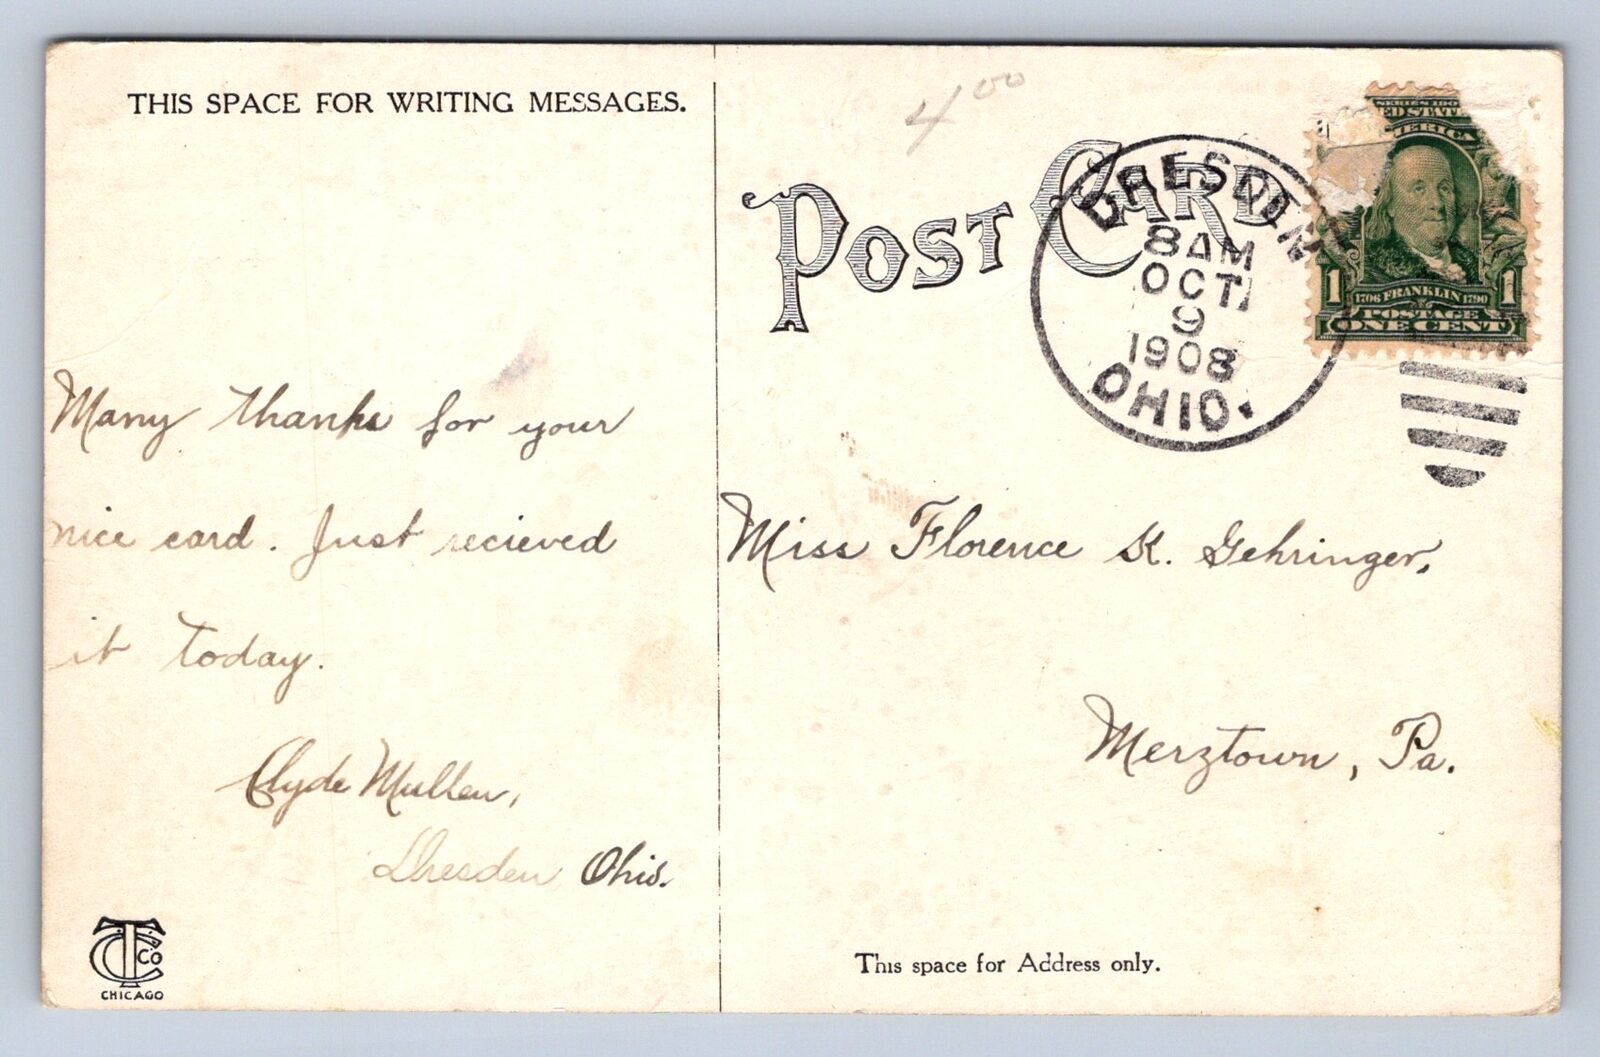 THIS SPACE FOR WRITING MESSAGES.
Many thanks for your
nice card. Just recieved
it today.
Clyde Mullen,
Dresden Ohio.
C.T.Co
CHICAGO
4 00
POST CARD
DRESDEN
8 AM
OCT
9
1908
OHIO.
SERIES 190
ED STAT
MERICA
1 1706 FRANKLIN 1790 1
POSTAGE
ONE CENT
Miss Florence K. Gehringer,
Merztown, Pa.
This space for Address only.